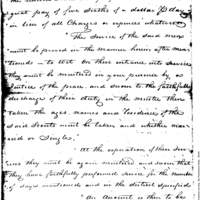 great pay of five sixths of a dollar P day
in lieu of all Charges or expences whatever
"The Service of the said men
must be proved in the manner herein after men-
tioned – to wit on their entrance into service
they must be mustered in your presence by a
Justice of the peace and sworn to the faithful
discharge of their duty – the muster then
taken the ages, names and residence of the
said Scouts must be taken and whether mar-
ried or Single.
"At the expiration of their Ser-
vice they must be again mustered and sworn that
they have faithfully performed service for the number
of days mentioned and in the district specified
"An Account is then to be